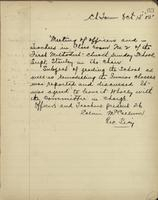 Meeting of officers and
teachers in Class room No 2 of the
First Methodist Church Sunday School
Supt. Stanley in the chair
Subject of grading the School as
well as remodeling the Primary Classes
was reported and discussed. It
was agreed to leave it wholly with
the Committee in charge
Officers and Teachers present 26
Sec'y